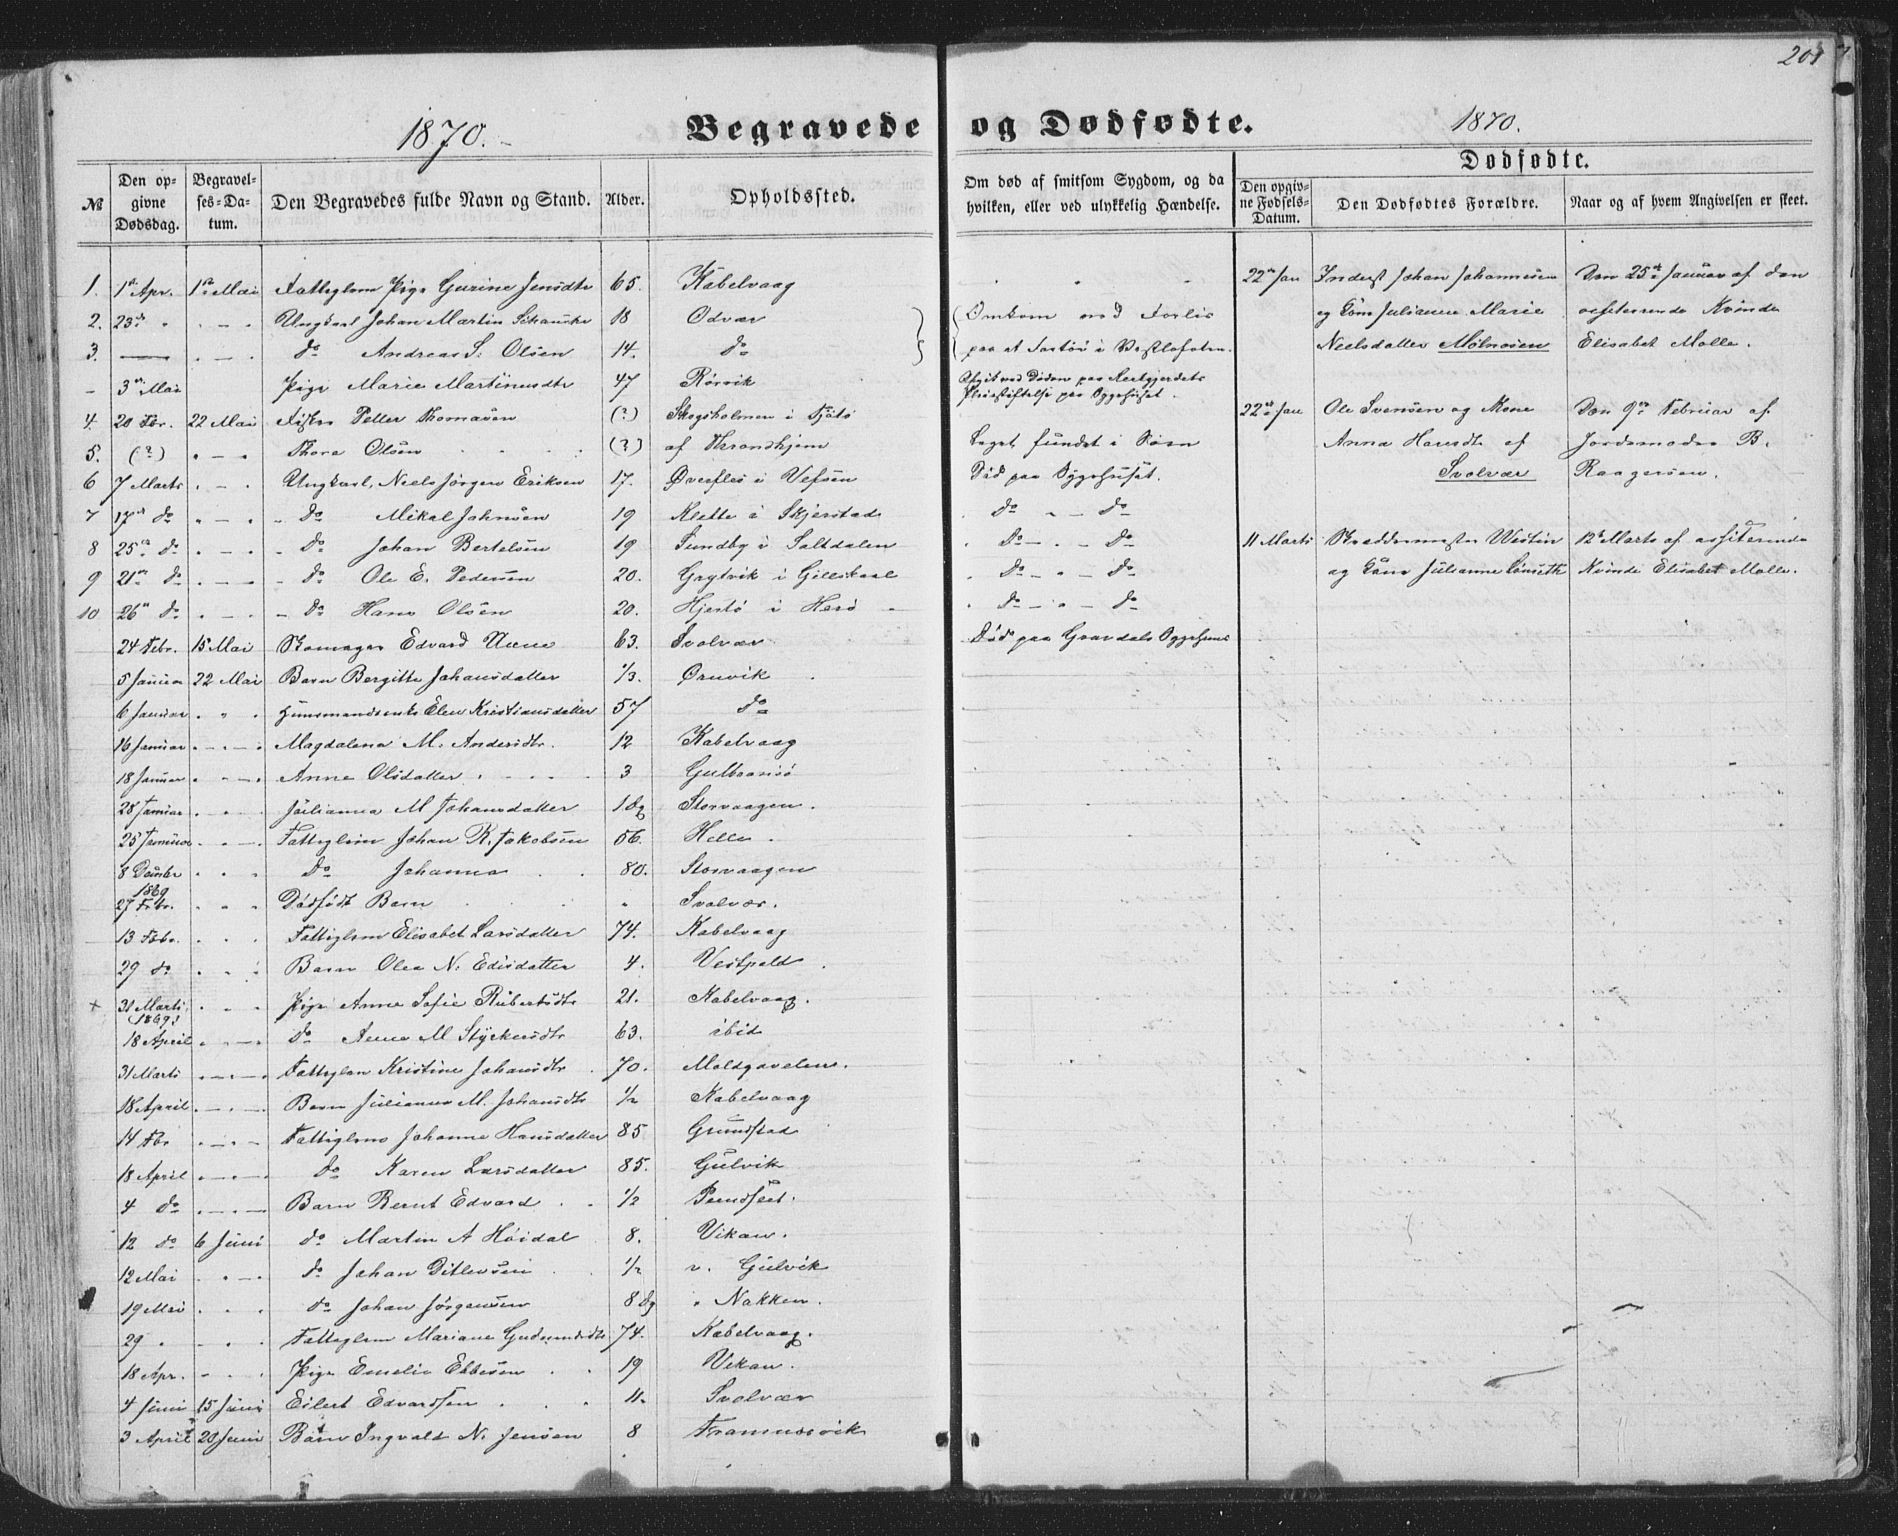 201
1870.
Begravede og Dødfødte.
1870.
Dødfødte.
№
Den opgivne Dødsdag.
Begravelses-Datum.
Den Begravedes fulde Navn og Stand.
Alder.
Opholdssted.
Om død af smitsom Sygdom, og da hvilken, eller ved ulykkelig Hændelse.
Den opgivne Fødsels-Datum.
Den Dødfødtes Forældre.
Naar og af hvem Angivelsen er skeet.
1. 1ste Apr. 1ste Mai Fattiglem Pige Gurine Jensdtr 65. Kabelvaag
2. 23de " " — " Ungkarl Johan Martin 18 Odvær Omkom ved Forlis
3. — " — " do Andreas S. Olsen 14. do paa et i Vestlofoten.
- 3die Mai Pige Marie Martinusdtr 47 Rørvik
4. 20 Fbr. 22 Mai Petter Thomasen (?) Skogsholmen i Tjøtø
5. (?) " — " Thore Olsen (?) af Throndhjem Liget fundet i Søen
6 7 Marts " — " Ungkarl. Niels Jørgen Eriksen 17. i Vefsen Død paa Sygehuset.
7 17de do " — " do Mikal Johnsen 19 Klette i Skjerstad do " — do
8 25de do " — " do Johan Bertelsen 19 Sundby i Saltdalen do — " — do
9 21de do " — " do Ole E. Pedersen 20. i Gilleskaal do — " — do
10 26de do " — " do Hans Olsen 20. Hjertø i Herø do — " — do
24 Febr. 15 Mai Skomager Edvard 63. Svolvær Død paa Gravdals Sygehuus
5 Januar 22 Mai Barn Bergitte Johansdatter 1/3. Ørsvik
6 Januar " " " Huusmandsenke Elen Kristiansdatter 57 do
16 Januar " — " Magdalena M. Andersdtr. 12 Kabelvaag
18 Januar " — " Anne Olsdatter 3 Gulbransø
28 Januar " " " Julianna M Johansdatter 1 Dg Storvaagen.
25 Januar " — " Fattiglem Johan R. Jakobsen 56. Helle
8 Decmbr 1869 " " " do Johanna 80. Storvaagen
27 Febr. " " " Dødfødt Barn " Svolvær.
13 Febr. " " " Fattiglem Elisabet Larsdatter 74. Kabelvaag
29 do " " " Barn Olea N. Edisdatter 4. Vestpold
+ 31 Marts (1869) " " " Pige Anne Sofie Rubertsdtr 21. Kabelvaag.
18 April " — " do Anne M Styrkersdtr 63. ibid
31 Marts " — " Fattiglem Kristine Johansdtr 70. Moldgavelen.
18 April " — " Barn Julianna M. Johansdtr 1/2 Kabelvaag
14 Fbr " — " Fattiglem Johanne Hansdatter 85 Grundstad
18 April " — " do Karen Larsdatter 85. Gulvik
4 do " — " Barn Bernt Edvard 1/2
12 do 6 Juni do Martin A Høidal 8. Vikan.
12 Mai " — " do Johan Ditlevsen 1/2 v. Gulvik
19 Mai " " " do Johan Jørgensen 8 Dg " Nakken.
29 " " " " Fattiglem Mariane Gudmundsdtr 74. Kabelvaag.
18 Apr. " " " Pige Emelie Ebbesen 19 Vikan.
4 Juni 15 Juni Eilert Edvardsen 11. Svolvær
3 April 20 Juni Barn Ingvald N. Jensen 8
22de Jan Inderst Johan Johannesen
og Kone Julianne Marie
Nielsdatter Mølnosen
Den 25de Januar af den
assisterende Kvinde
Elisabet Molle.
22de Jan Ole Svensen og Kone
Anna Hansdtr af
Svolvær
Den 9de Februar af
Jordemoder B.
Raagersen.
11 Marts Skræddermester
og Kone Julianne
12te Marts af assisterende
Kvinde Elisabet Molle.